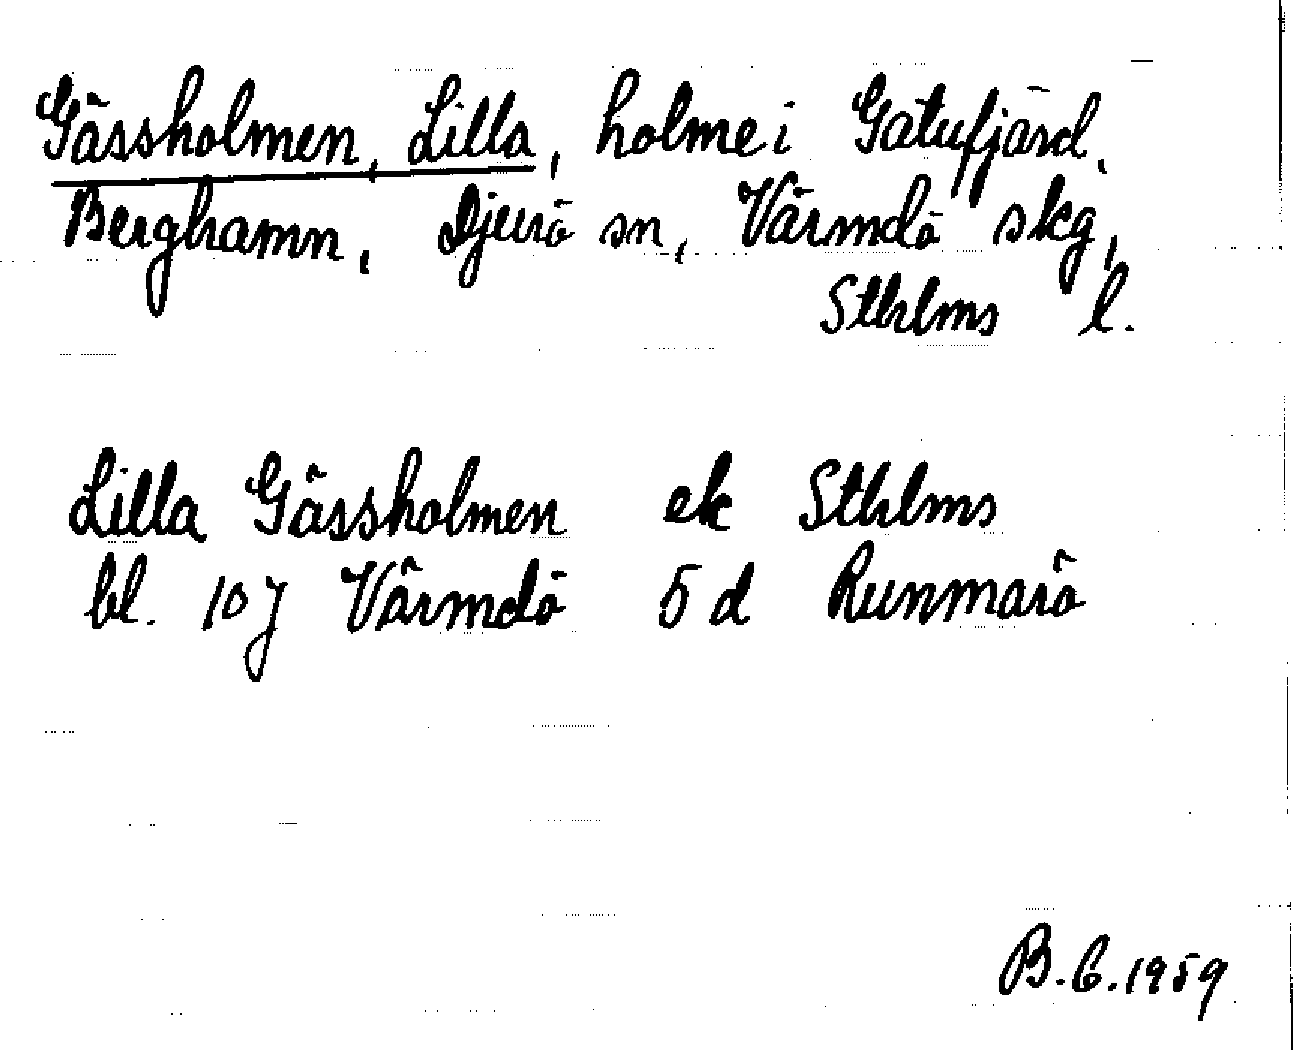 Gässholmen, Lilla, holme i Gatufjärd,
Berghamn, Djurö sn, Värmdö skg,
Sthlms l.
Lilla Gässholmen ek Sthlms
bl. 10 J Värmdö 5 d Runmarö
B.G.1959